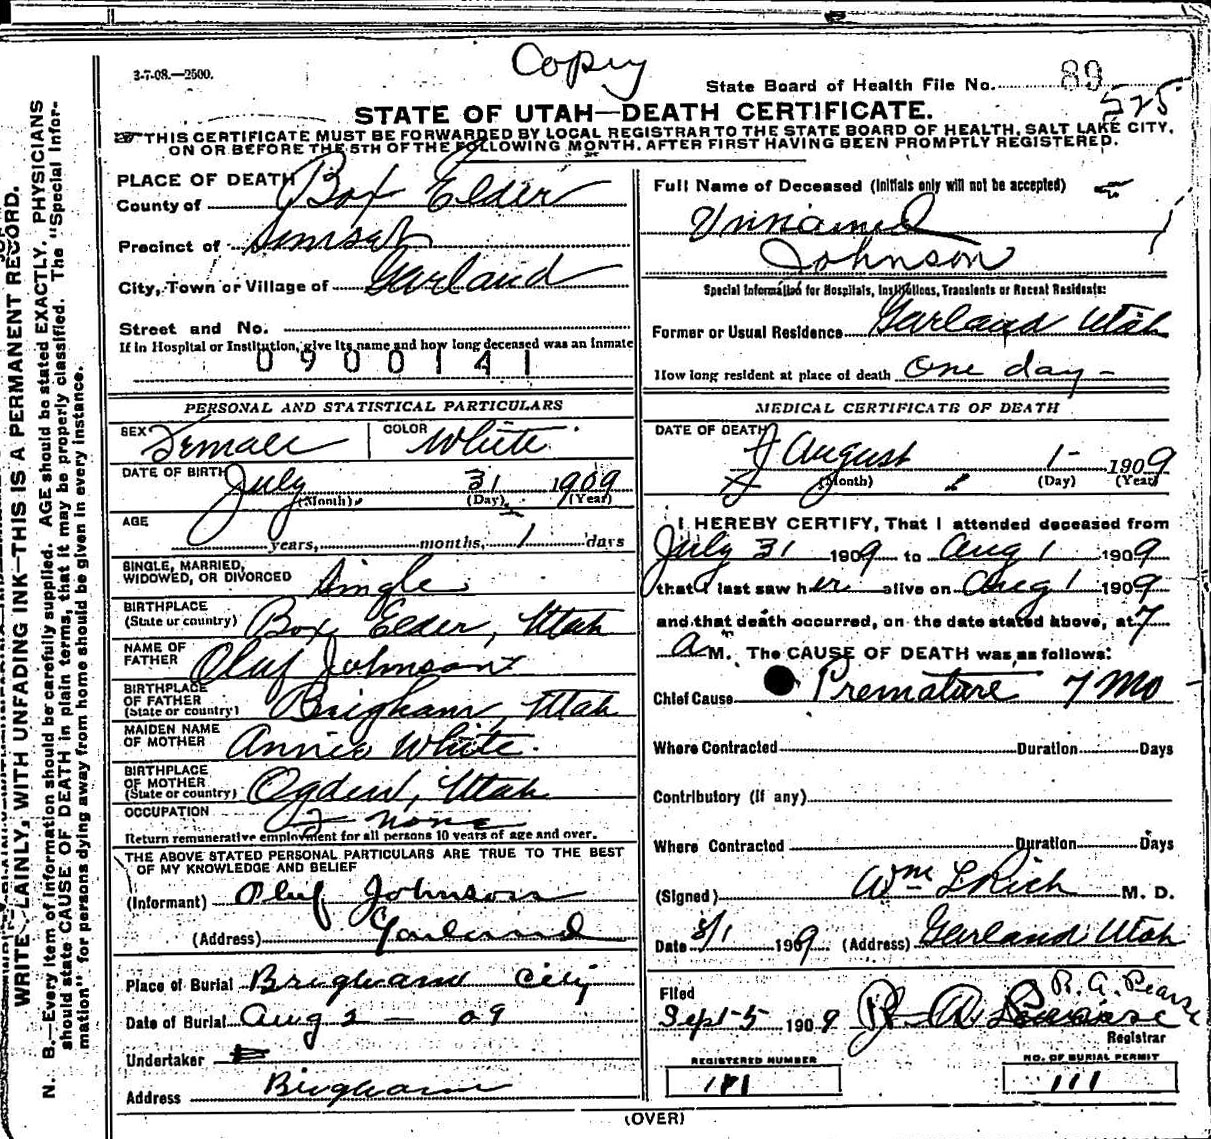 Copy
3-7-08.—2500.
State Board of Health File No. 89
525
STATE OF UTAH—DEATH CERTIFICATE.
THIS CERTIFICATE MUST BE FORWARDED BY LOCAL REGISTRAR TO THE STATE BOARD OF HEALTH, SALT LAKE CITY,
ON OR BEFORE THE 5TH OF THE FOLLOWING MONTH, AFTER FIRST HAVING BEEN PROMPTLY REGISTERED.
PLACE OF DEATH
County of Box Elder
Precinct of
City, Town or Village of Garland
Street and No.
If in Hospital or Institution, give its name and how long deceased was an inmate
0900141
PERSONAL AND STATISTICAL PARTICULARS
SEX Female COLOR White
DATE OF BIRTH July 31 1909
(Month) (Day) (Year)
AGE
years, months, 1 days
SINGLE, MARRIED,
WIDOWED, OR DIVORCED Single
BIRTHPLACE
(State or country) Box Elder, Utah
NAME OF
FATHER Oluf Johnson
BIRTHPLACE
OF FATHER
(State or country) Brigham, Utah
MAIDEN NAME
OF MOTHER Annie White.
BIRTHPLACE
OF MOTHER
(State or country) Ogden, Utah
OCCUPATION none
Return remunerative employment for all persons 10 years of age and over.
THE ABOVE STATED PERSONAL PARTICULARS ARE TRUE TO THE BEST
OF MY KNOWLEDGE AND BELIEF
(Informant) Oluf Johnson
(Address) Garland
Place of Burial Brigham City
Date of Burial Aug 2 - 09
Undertaker
Address Brigham
Full Name of Deceased (Initials only will not be accepted)
Unnamed
Johnson
Special Information for Hospitals, Institutions, Transients or Recent Residents:
Former or Usual Residence Garland Utah
How long resident at place of death One day -
MEDICAL CERTIFICATE OF DEATH
DATE OF DEATH
August 1- 1909
(Month) (Day) (Year)
I HEREBY CERTIFY, That I attended deceased from
July 31 1909 to Aug 1 1909
that I last saw her alive on Aug 1 1909
and that death occurred, on the date stated above, at 7
A M. The CAUSE OF DEATH was as follows:
Chief Cause Premature 7 Mo
Where Contracted Duration Days
Contributory (if any)
Where Contracted Duration Days
(Signed) Wm L Rich M. D.
Date 8/1 1909 (Address) Garland Utah
Filed
Sept-5 1909 R. A. Pearse
R. A. Pearse
Registrar
REGISTERED NUMBER
111
NO. OF BURIAL PERMIT
111
(OVER)
WRITE PLAINLY, WITH UNFADING INK—THIS IS A PERMANENT RECORD.
N. B.—Every item of information should be carefully supplied. AGE should be stated EXACTLY. PHYSICIANS
should state CAUSE OF DEATH in plain terms, that it may be properly classified. The "Special Infor-
mation" for persons dying away from home should be given in every instance.